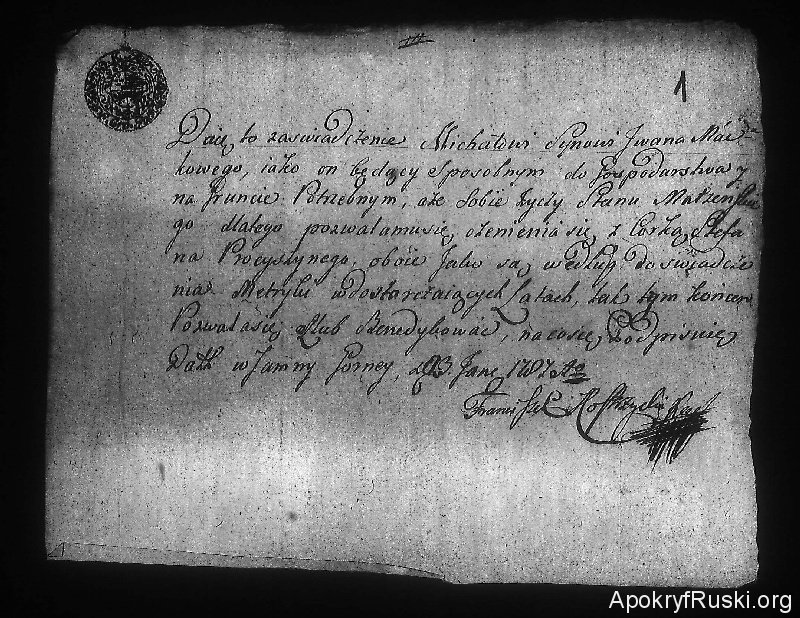 1
Daię to zaswiadczenie Michałowi Synowi Jwana Mać
kowego, iako on będący Sposobnym do Gospodarstwa y
na Gruncie Potrzebnym, aże Sobie życzy Stanu Małzenskie
go dlatego pozwalamusię ożenieniasię z Corką Stefa
na Procyszynego, oboie Jako są według doswiadcze
nia Metryki wdostarczaiących Latach, tak tym końcem
Pozwalasię Slub Benedykować, nacosię Podpisuię
Datt w Jamny Gorney, d 23 Jane 1787 Ao
Franciszek
ApokryfRuski.org